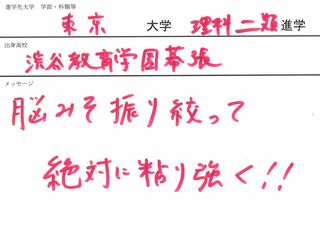 進学先大学 学部・科類等
東京 大学 理科二類 進学
出身高校
渋谷教育学園幕張
メッセージ
脳みそ振り絞って
絶対に粘り強く!!